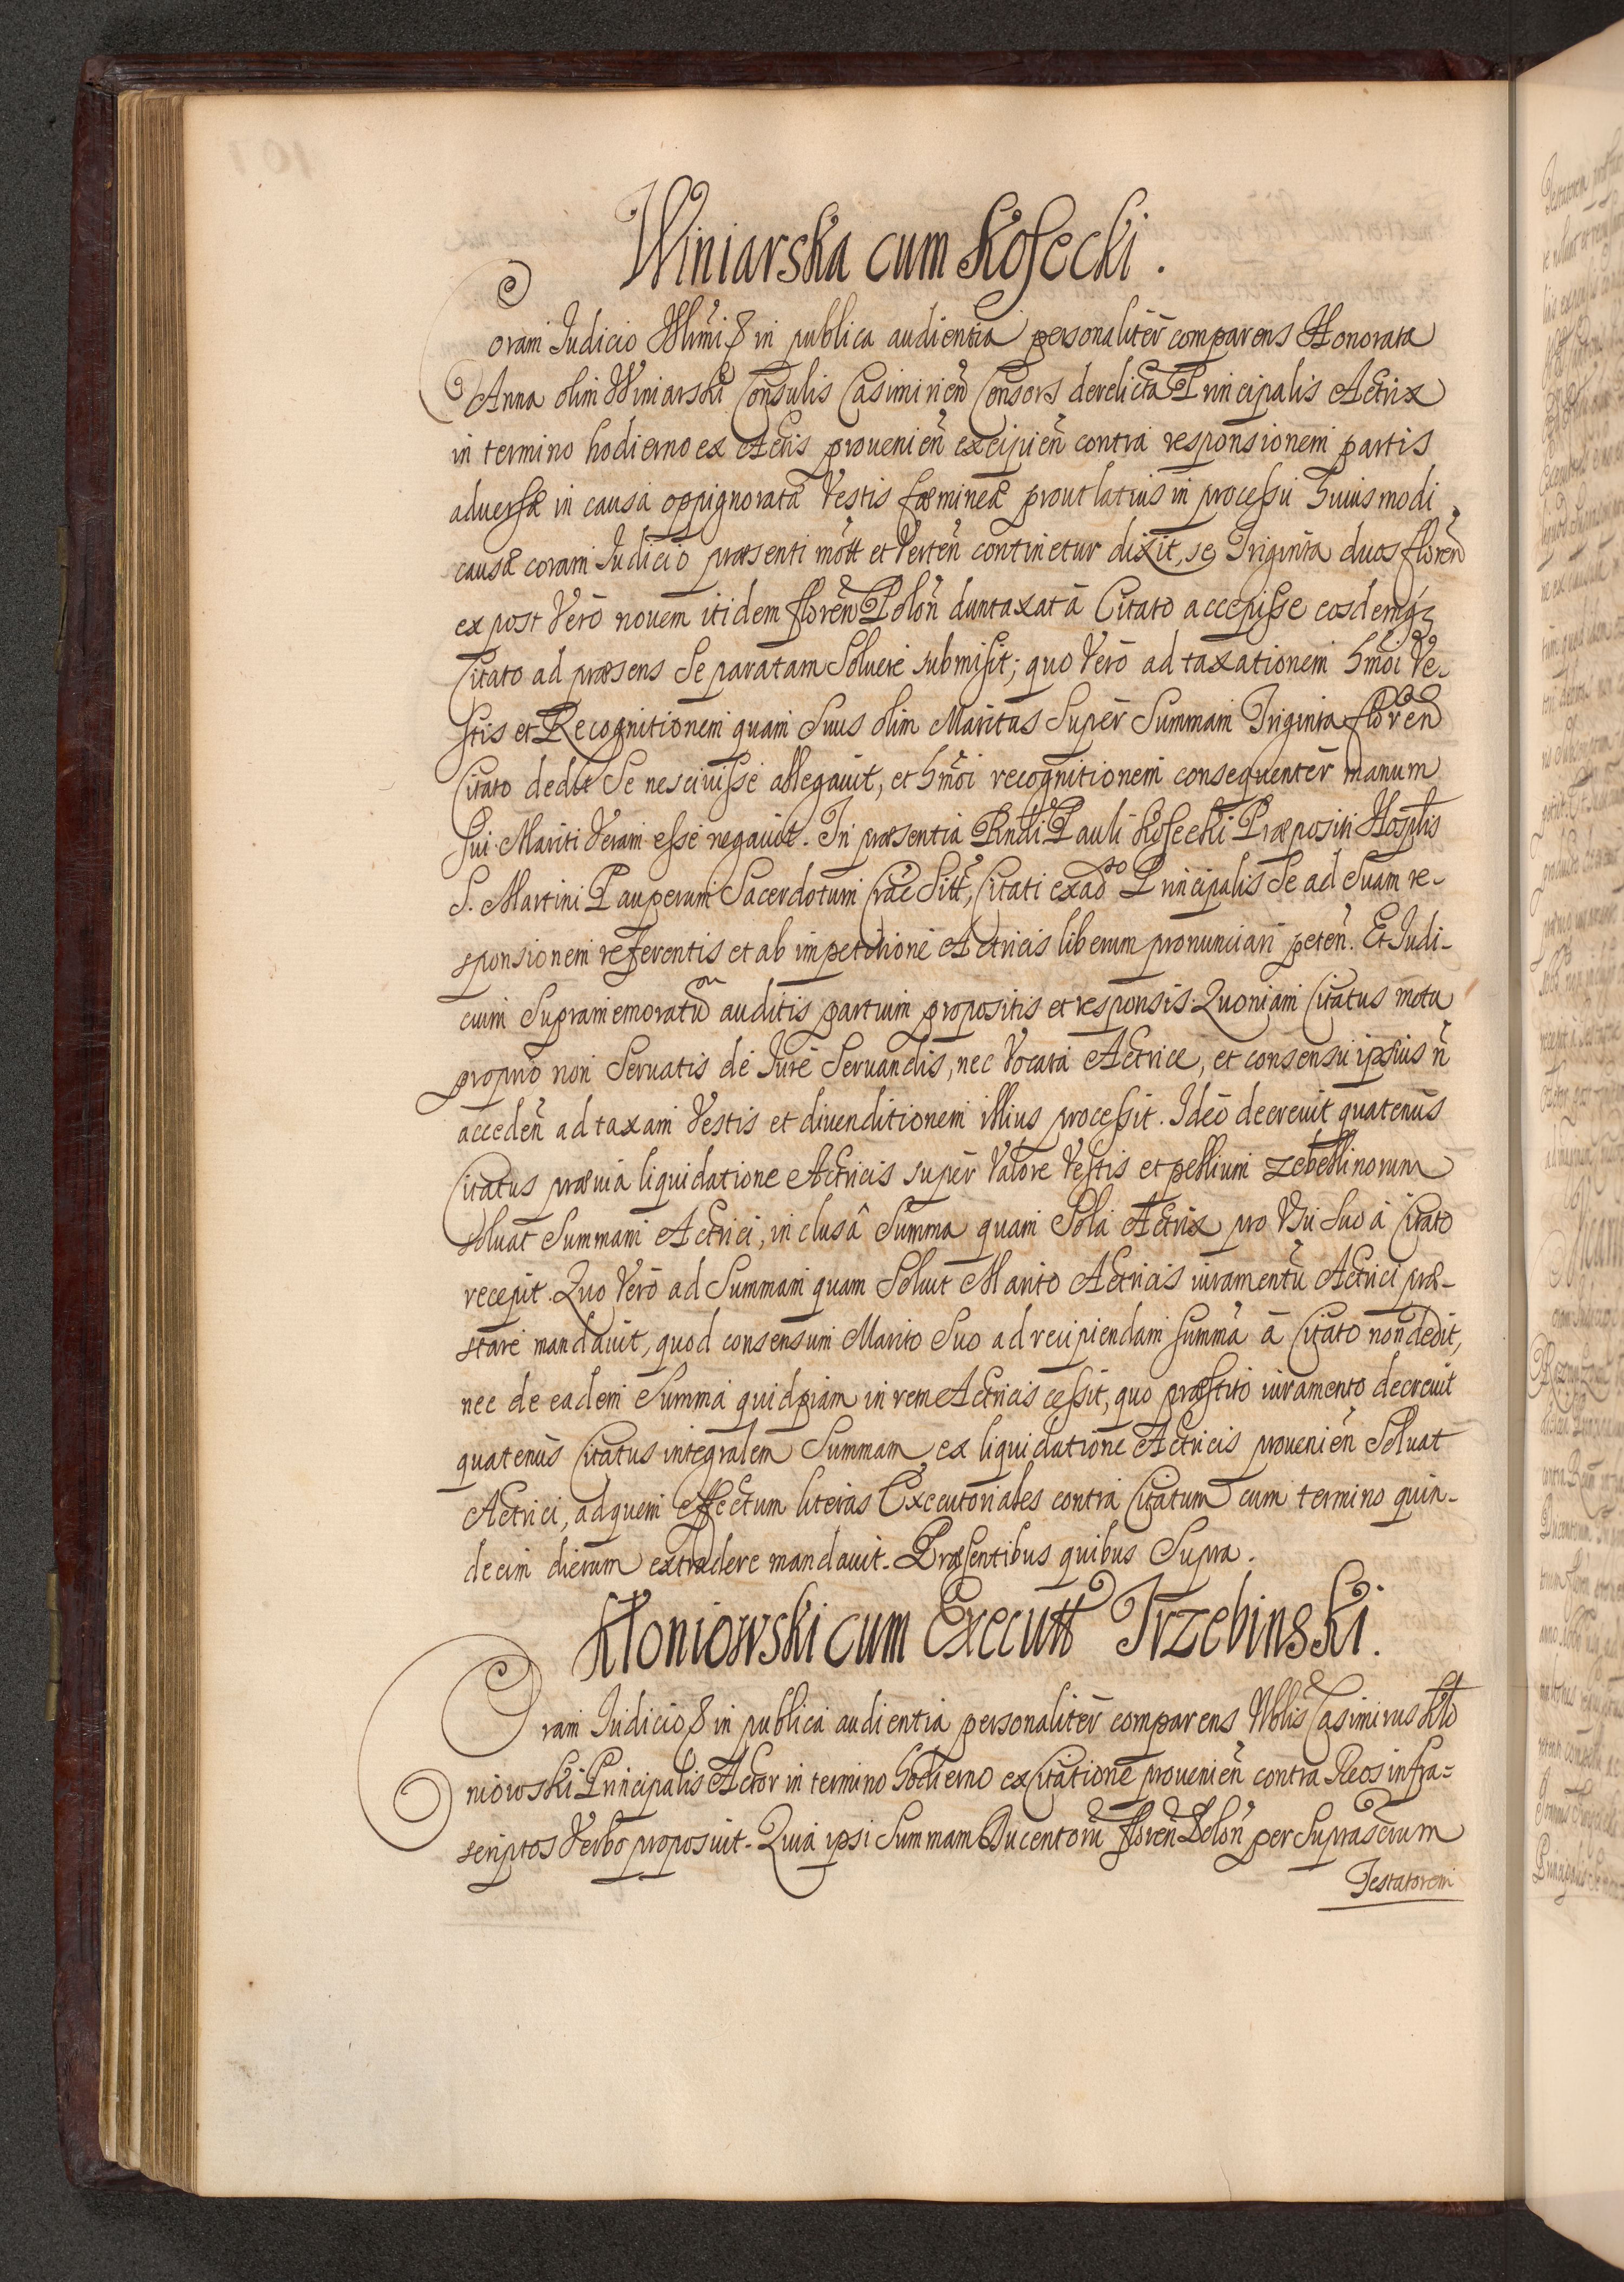 Winiarska cum Kosecki.
Coram Iudicio Illrmi & in publica audientia personalitèr comparens Honorata
Anna olim Winiarski Consulis Casimirień Consors derelicta Principalis Actrix
in termino hodierno ex Actis prouenień excipień contra responsionem partis
aduersæ in causa oppignoratæ Vestis fæmineæ prout latius in processu huiusmodi
causæ coram Iudicio præsenti mott et Verteń continetur dixit, se Triginta duos floreń
ex post Verò nouem itidem floreń Poloń duntaxat à Citato accepisse eosdemq;
Citato ad præsens Se paratam Soluere submisit; quo Verò ad taxationem hmoi Ve-
stis et Recognitionem quam Suus olim Maritus Supèr Summam Triginta floreń
Citato dedit Se nesciuisse allegauit, et hmoi recognitionem consequentèr manum
sui Mariti Veram esse negauit. In præsentia Rndi Pauli Kosecki Præpositi Hosplis
S. Martini Pauperum Sacerdotum Crac Sitt, Citati ex aduso Principalis Se ad Suam re-
sponsionem referentis et ab impetitione Actricis liberum pronunciari peteń. Et Iudi-
cium Supramemoratum auditis partium propositis et responsis. Quoniam Citatus motu
proprio non Seruatis de Iure Seruandis, nec Vocata Actrice, et consensu ipsius ń
accedeń ad taxam Vestis et diuenditionem illius processit. Ideò decreuit quatenùs
Citatus præuia liquidatione Actricis supèr Valore Vestis et pellium zebellinorum
soluat Summam Actrici, inclusâ Summa quam Sola Actrix pro Vsu Suo à Citato
recepit. Quo Verò ad Summam quam Soluit Marito Actricis iuramentū Actrici præ-
stare mandauit, quod consensum Marito Suo ad recipiendam summā à Citato non dedit,
nec de eadem Summa quidpiam in rem Actricis cessit, quo præstito iuramento decreuit
quatenùs Citatus integralem Summam ex liquidatione Actricis prouenień Soluat
Actrici, ad quem effectum literas Executoriales contra Citatum cum termino quin-
decim dierum extradere mandauit. Præsentibus quibus Supra.
Kłoniowski cum Executt Trzebinski.
Coram Iudicio & in publica audientia personalitèr comparens Nblis Casimirus Kło
niowski Principalis Actor in termino hodierno ex Citatione prouenień contra Reos infra=
scriptos Verbo proposuit. Quia ipsi Summam Ducentorū floreń Poloń per Suprascrum
Testatorem